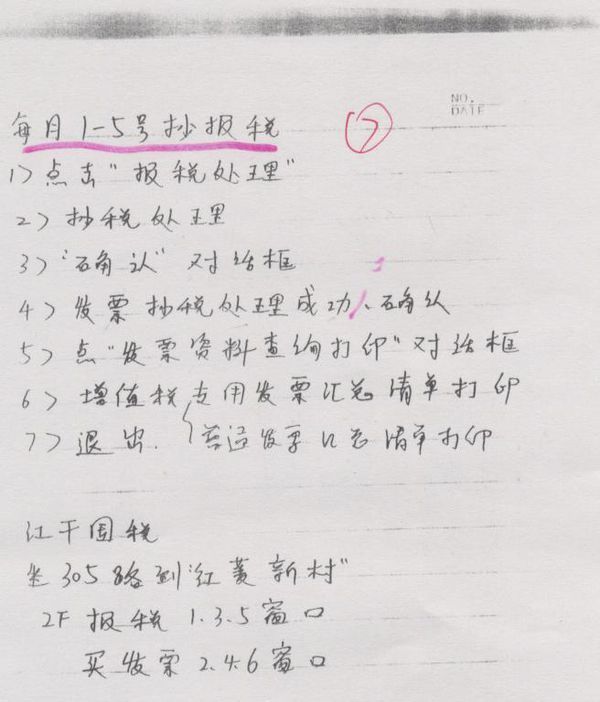 NO.
DATE
每月1-5号抄报税 ⑦
1> 点击"报税处理"
2> 抄税处理
3> "确认"对话框
4> 发票抄税处理成功、确认
5> 点"发票资料查询打印"对话框
6> 增值税专用发票汇总清单打印
7> 退出. 普通发票汇总清单打印
江干国税
坐305路到"红菱新村"
2F 报税 1.3.5窗口
买发票 2.4.6窗口